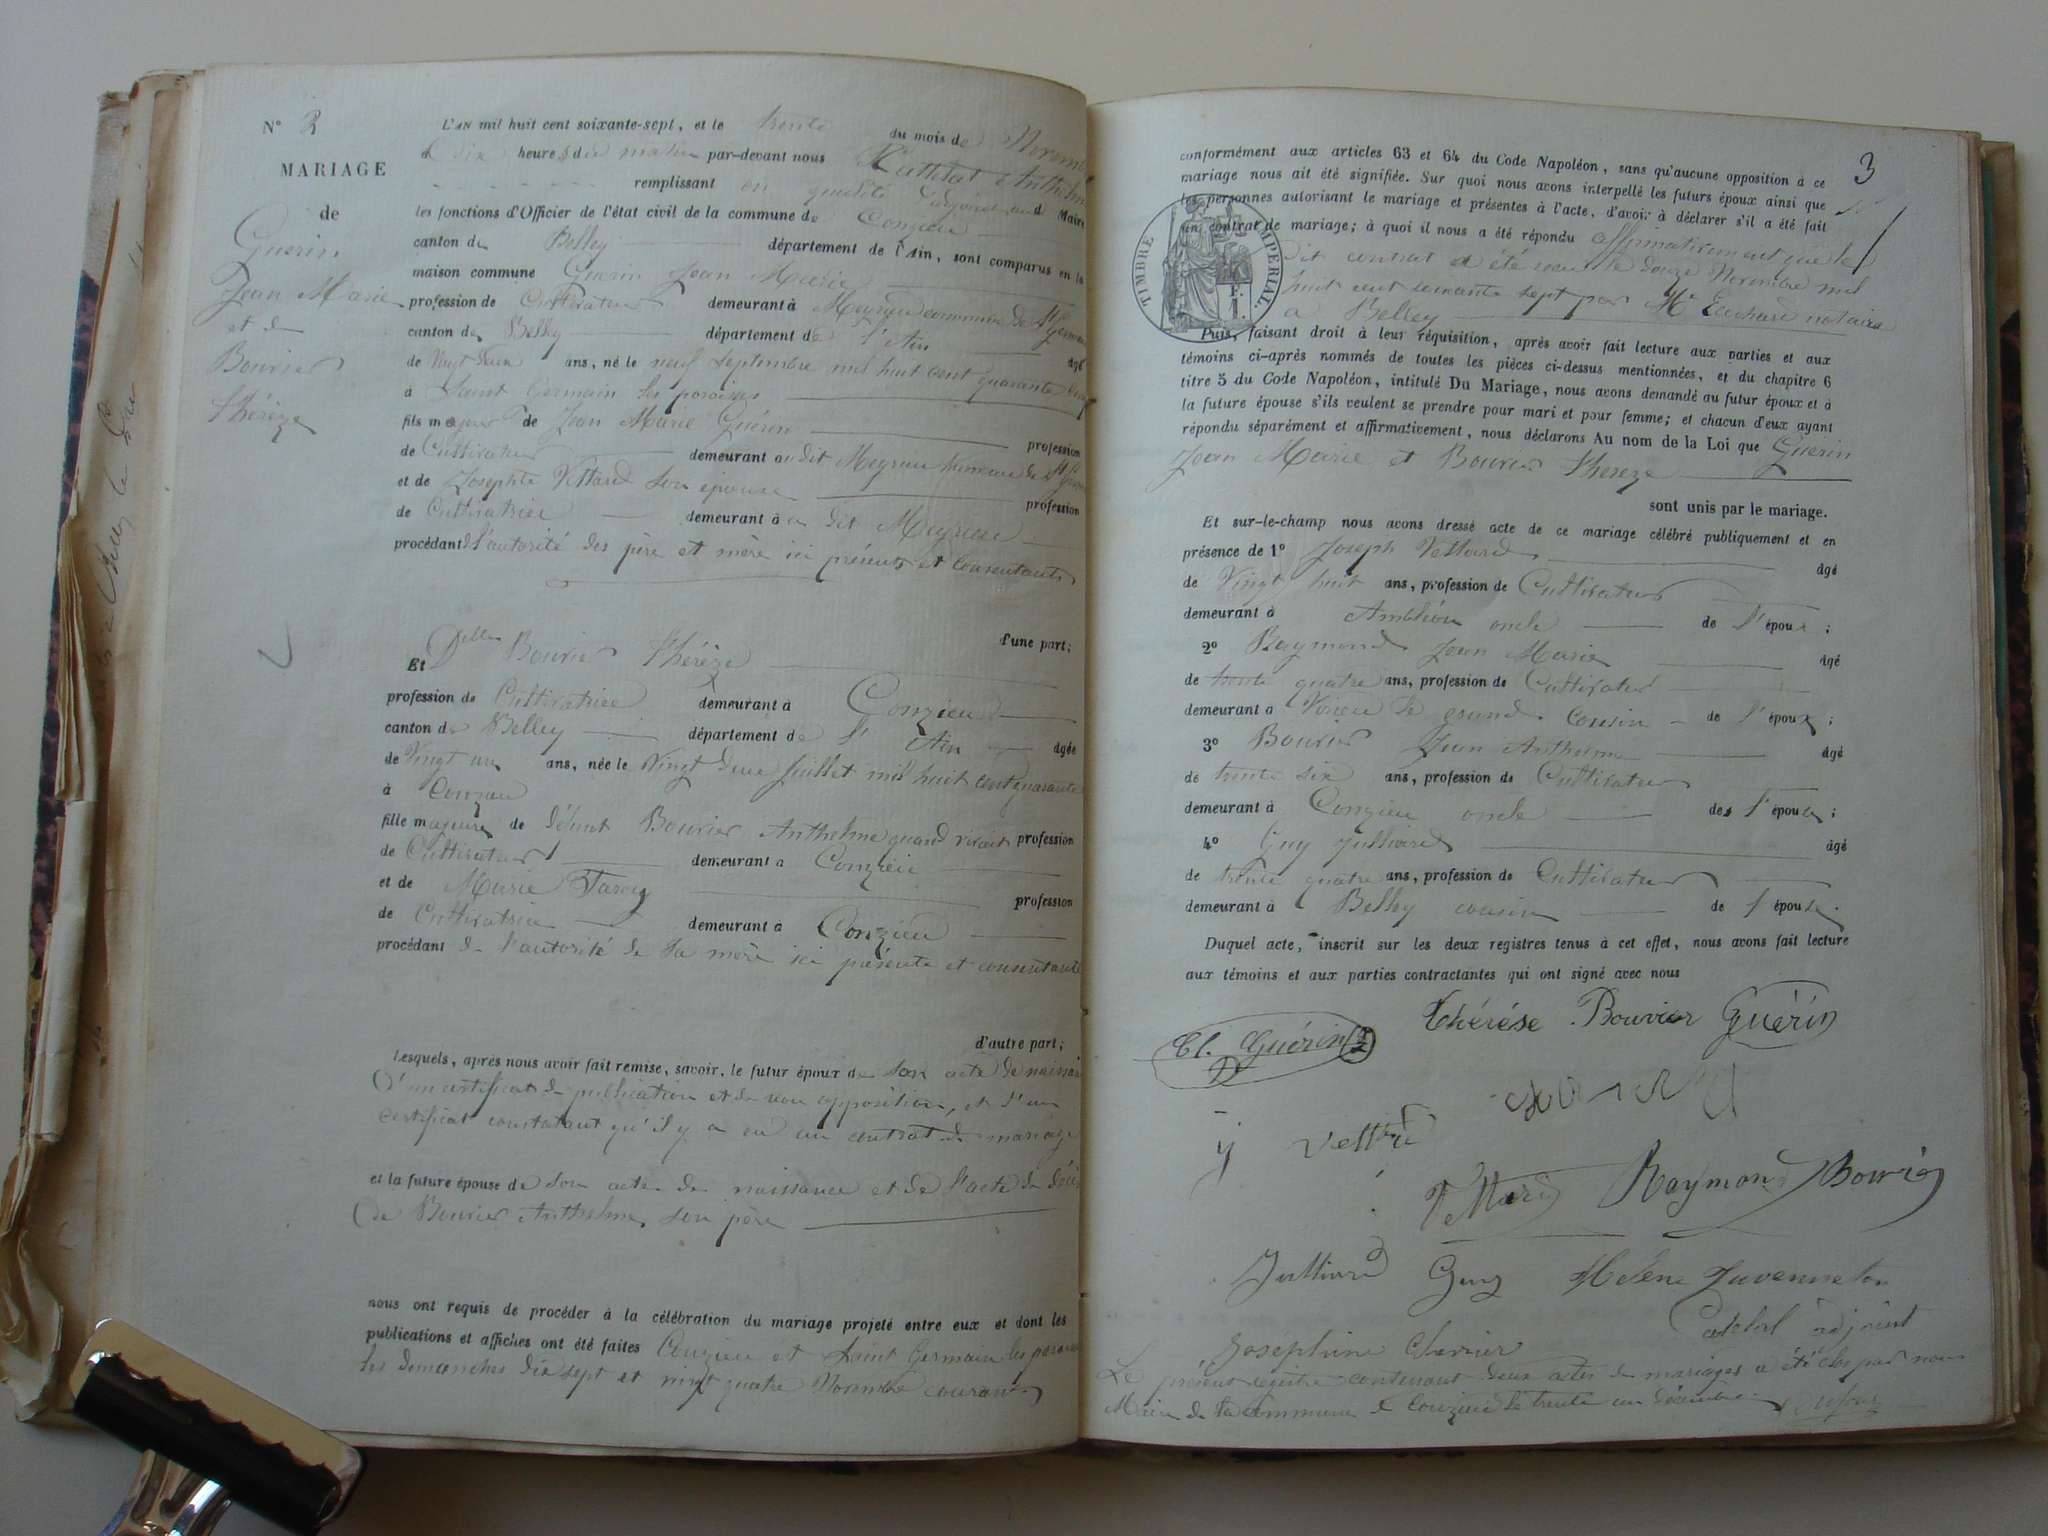 N° 2
MARIAGE
de
Guerin
Jean Marie
et de
Bouvier
Thérèze
L'AN mil huit cent soixante-sept, et le trente du mois de Novem
à dix heures du matin par-devant nous Anthelme
remplissant en qualité d'adjoint au Maire
les fonctions d'Officier de l'état civil de la commune de Conzieu
canton de Belley département de l'Ain, sont comparus en la
maison commune Guerin Jean Marie
profession de Cultivateur demeurant à Meyrieu commune de St Germain
canton de Belley département de l'Ain âgé
de vingt deux ans, né le neuf septembre mil huit cent quarante cinq
à Saint Germain les paroisses
fils majeur de Jean Marie Guérin profession
de Cultivateur demeurant au dit Meyrieu commune de St Germain
et de Josephte Vettard son épouse profession
de Cultivatrice demeurant à au dit Meyrieu
procédant de l'autorité des père et mère ici présents et consentants
d'une part;
Et Delle Bouvier Thérèze
profession de Cultivatrice demeurant à Conzieu
canton de Belley département de l'Ain âgée
de vingt un ans, née le vingt deux Juillet mil huit cent quarante
à Conzieu
fille majeure de défunt Bouvier Anthelme quand vivait profession
de Cultivateur demeurant à Conzieu
et de Marie profession
de Cultivatrice demeurant à Conzieu
procédant de l'autorité de sa mère ici présente et consentante
d'autre part;
Lesquels, après nous avoir fait remise, savoir, le futur époux de son acte de naissan
d'un certificat de publication et de non opposition, et d'un
certificat constatant qu'il y a eu un contrat de mariage
et la future épouse de son acte de naissance et de l'acte de décès
de Bouvier Anthelme, son père
nous ont requis de procéder à la célébration du mariage projeté entre eux et dont les
publications et affiches ont été faites Conzieu et Saint Germain les paroisses
les dimanches dix sept et vingt quatre Novembre courant
3
conformément aux articles 63 et 64 du Code Napoléon, sans qu'aucune opposition à ce
mariage nous ait été signifiée. Sur quoi nous avons interpellé les futurs époux ainsi que
les personnes autorisant le mariage et présentes à l'acte, d'avoir à déclarer s'il a été fait
un contrat de mariage; à quoi il nous a été répondu affirmativement que le
dit contrat a été reçu le douze Novembre mil
huit cent soixante sept par Me notaire
à Belley
TIMBRE IMPÉRIAL
F. 1.
Puis, faisant droit à leur réquisition, après avoir fait lecture aux parties et aux
témoins ci-après nommés de toutes les pièces ci-dessus mentionnées, et du chapitre 6
titre 5 du Code Napoléon, intitulé Du Mariage, nous avons demandé au futur époux et à
la future épouse s'ils veulent se prendre pour mari et pour femme; et chacun d'eux ayant
répondu séparément et affirmativement, nous déclarons Au nom de la Loi que Guérin
Jean Marie et Bouvier Thereze
sont unis par le mariage.
Et sur-le-champ nous avons dressé acte de ce mariage célébré publiquement et en
présence de 1° Joseph Vettard âgé
de vingt huit ans, profession de Cultivateur
demeurant à Ambléon oncle de l'époux;
2° Raymond Jean Marie âgé
de trente quatre ans, profession de Cultivateur
demeurant à Virieu le grand cousin de l'époux;
3° Bouvier Jean Anthelme âgé
de trente six ans, profession de Cultivateur
demeurant à Conzieu oncle de l'épouse;
4° Guy Jullliard âgé
de trente quatre ans, profession de Cultivateur
demeurant à Belley cousin de l'épouse.
Duquel acte, inscrit sur les deux registres tenus à cet effet, nous avons fait lecture
aux témoins et aux parties contractantes qui ont signé avec nous
Thérése Bouvier Guérin
Cl. Guérin
j vettard
Marie Raymond Bouvier
Julliard Guy Helene Juvanneton
adjoint
Joséphine Charvier
Le présent registre contenant deux actes de mariages a été clos par nous
Maire de la commune de Conzieu le trente un décembre Dufour